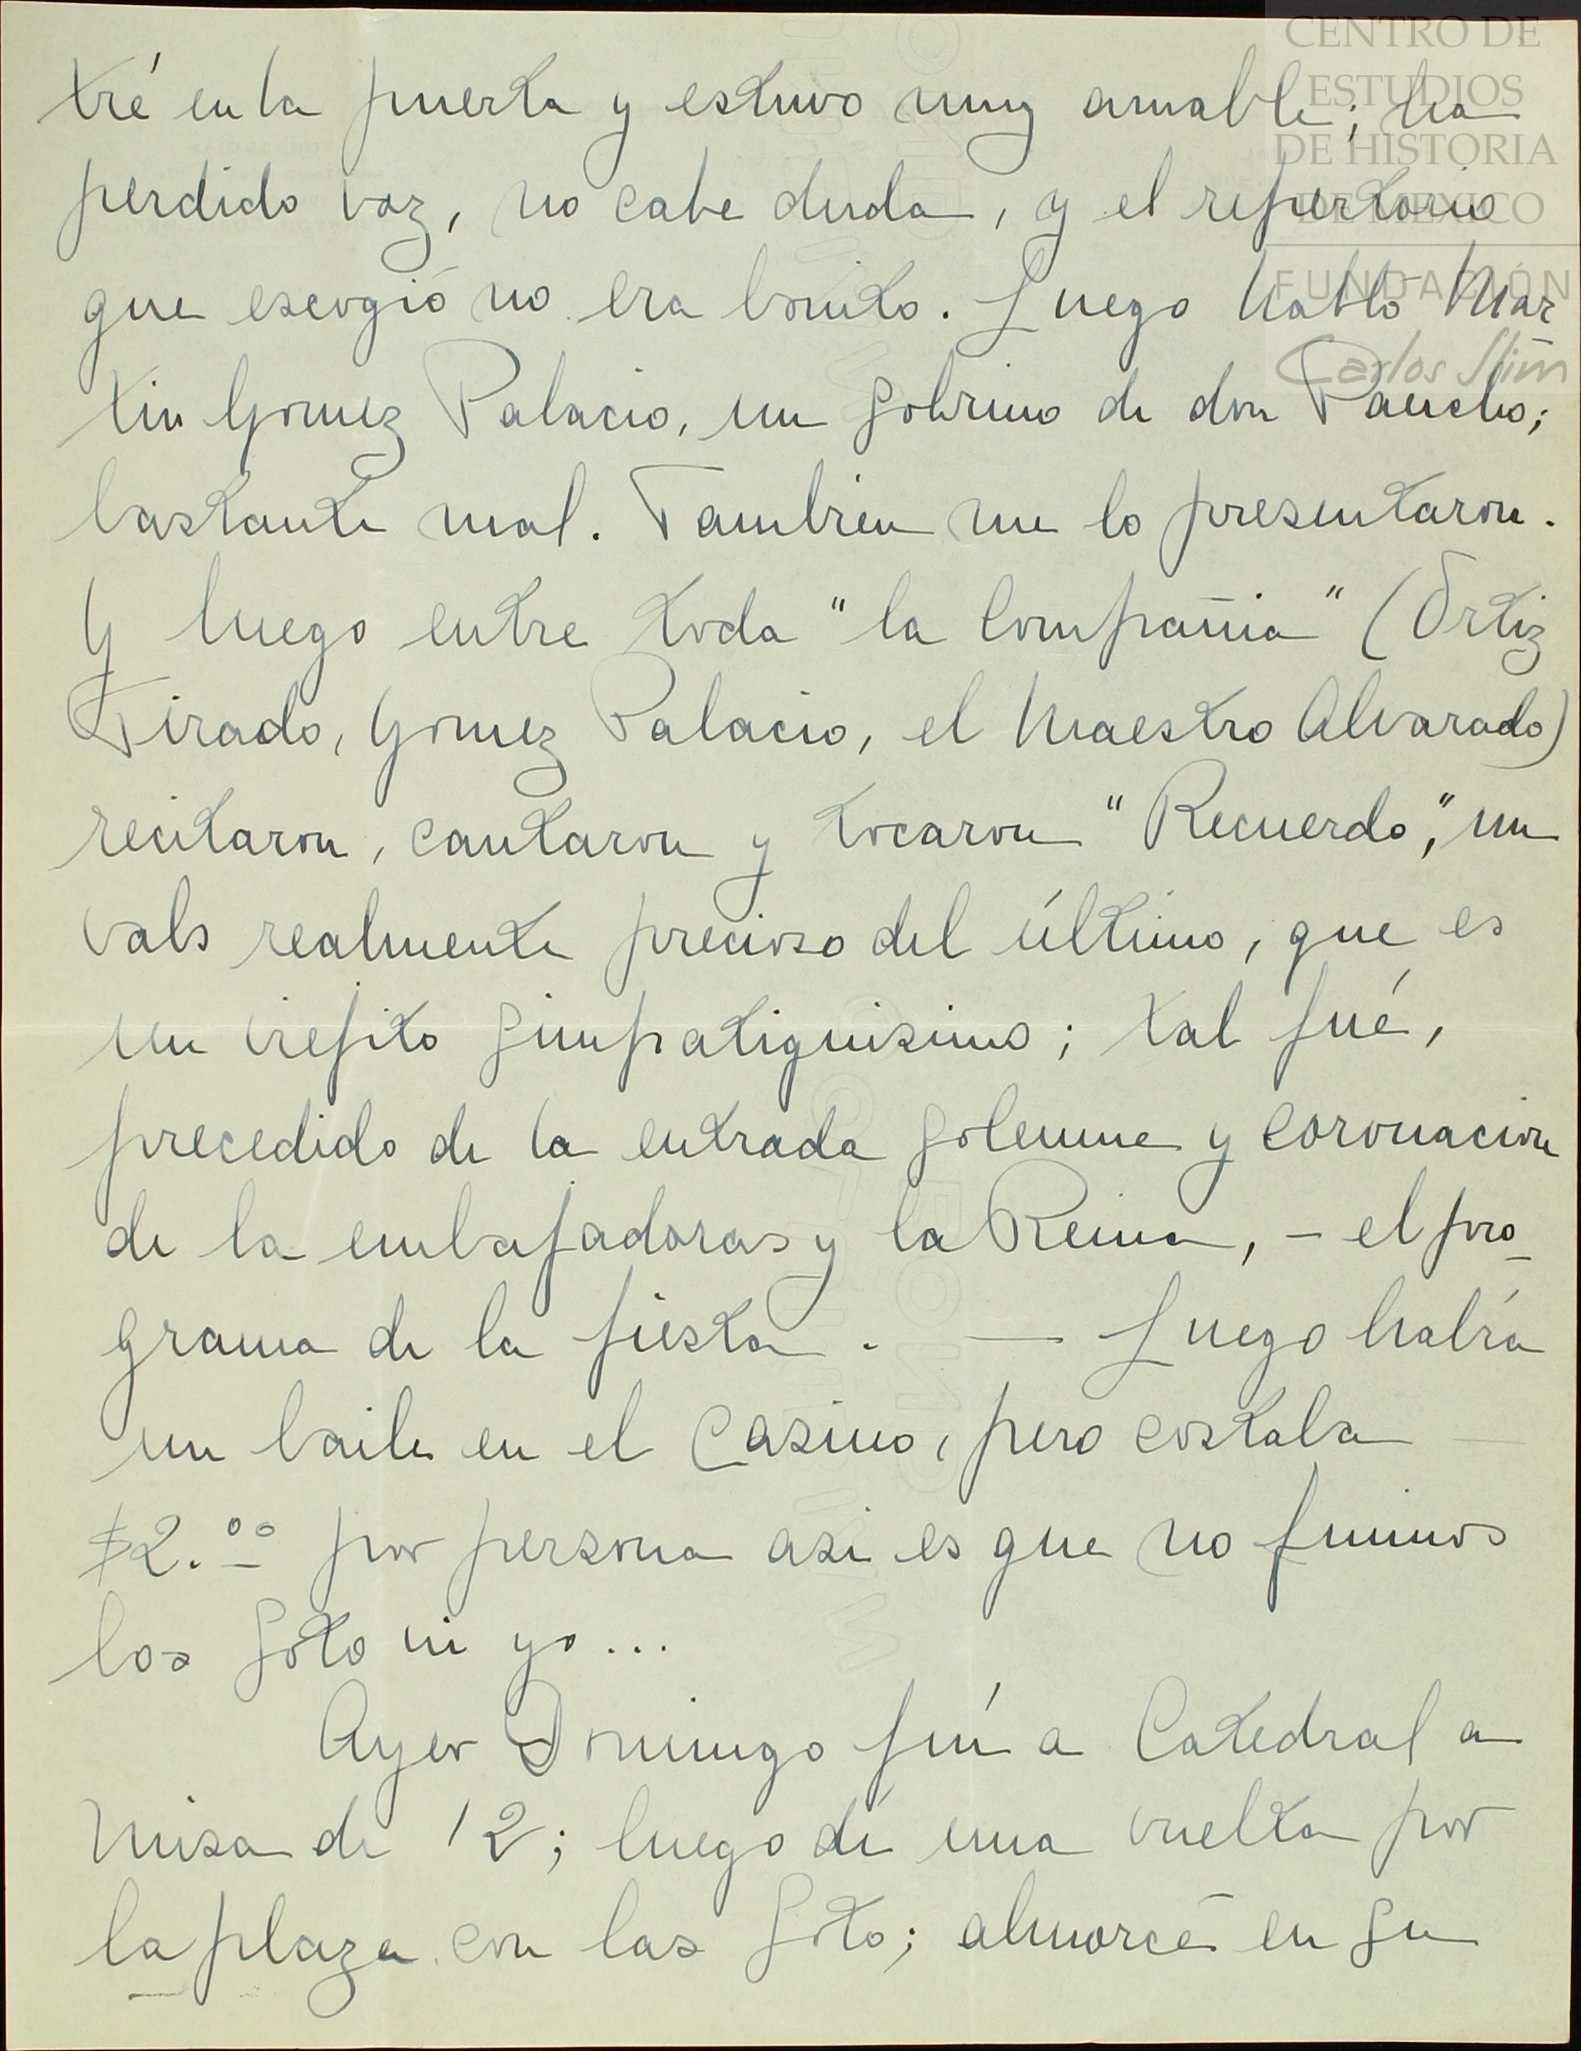 CENTRO DE
ESTUDIOS
DE HISTORIA
DE MEXICO
FUNDACIÓN
Carlos Slim
tré en la puerta y estuvo muy amable; ha
perdido voz, no cabe duda, y el repertorio
que escogió no era bonito. Luego habló Mar
tin Gomez Palacio, un sobrino de don Pancho;
bastante mal. Tambien me lo presentaron.
Y luego entre toda "la Compañia" (Ortiz
Tirado, Gomez Palacio, el Maestro Alvarado)
recitaron, cantaron y tocaron "Recuerdo," un
vals realmente precioso del último, que es
un viejito simpatiquisimo; tal fué,
precedido de la entrada solemne y coronacion
de la embajadoras y la Reina, - el pro-
grama de la fiesta. — Luego habría
un baile en el Casino, pero costaba —
$2.oo por persona asi es que no fuimos
los Soto ni yo...
Ayer Domingo fuí a Catedral a
Misa de 12; luego dí una vuelta por
la plaza con las Soto; almorcé en su